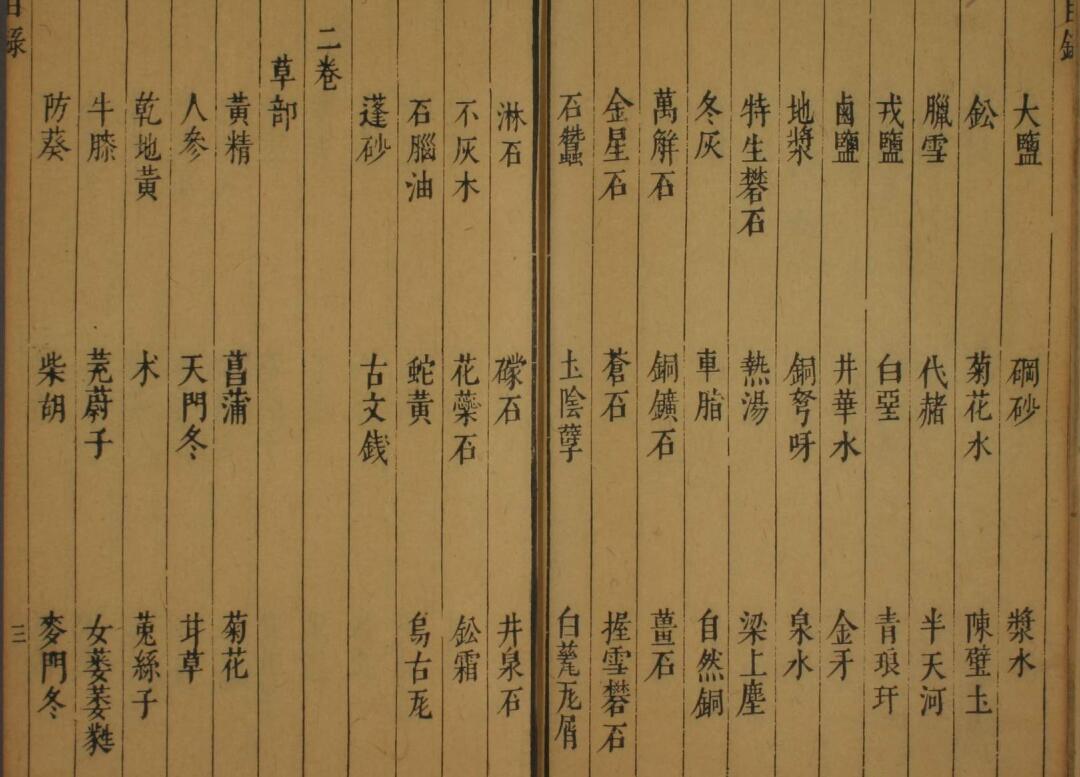 大鹽 碙砂 漿水
鈆 菊花水 陳壁土
臘雪 代赭 半天河
戎鹽 白堊 青琅玕
鹵鹽 井華水 金牙
地漿 銅弩呀 泉水
特生礬石 熱湯 梁上塵
冬灰 車脂 自然銅
萬觧石 銅鑛石 薑石
金星石 蒼石 握雪礬石
石蠶 土陰孽 白瓷瓦屑
淋石 礞石 井泉石
不灰木 花蘂石 鈆霜
石腦油 蛇黃 烏古瓦
蓬砂 古文錢
二卷
草部
黃精 菖蒲 菊花
人參 天門冬 甘草
乾地黃 术 菟絲子
牛膝 茺蔚子 女萎萎蕤
防葵 柴胡 麥門冬
目錄
三